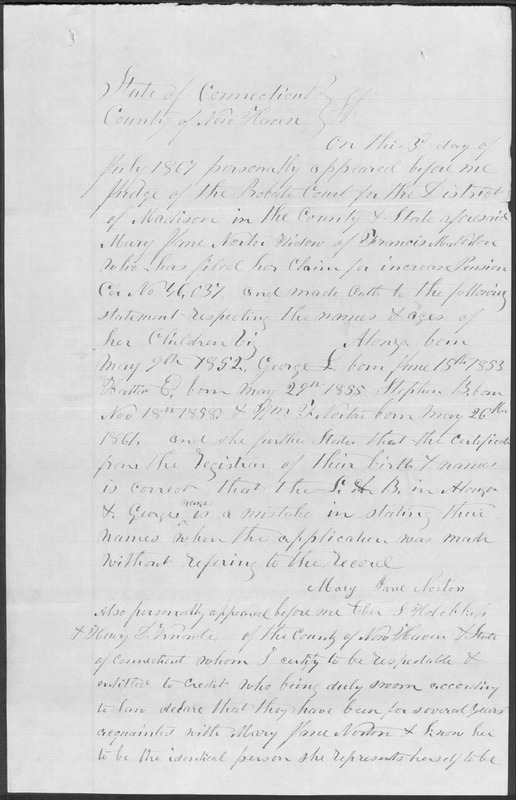 State of Connecticut } ss
County of New Haven
On this 3d day of
July 1867 personally appeared before me
Judge of the Probate Court for the District
of Madison in the County & State aforesaid
Mary Jane Norton Widow of Francis Norton
who has filed her Claim for increase Pension
Cer No and made Oath to the following
statement respecting the names & ages of
her Children Viz Alonzo born
May 9th 1852, George L born June 18th 1853
Hattie E. born May 29th 1855 Stephen B. born
Nov 18th 1858, & Wm F. Norton born May 26th
1861. and she further States that the certificate
from the Registrar of their birth & names
is correct that the in Alonzo
& Georges names is a mistake in stating their
names when the application was made
without refering to the Record
Mary Jane Norton
Also personally appeared before me Eber S Hotchkiss
& Henry of the County of New Haven & State
of Connecticut whom I certify to be respectable &
entitled to credit who being duly sworn according
to law declare that they have been for several years
acquainted with Mary Jane Norton & know her
to be the identical person she represents herself to be